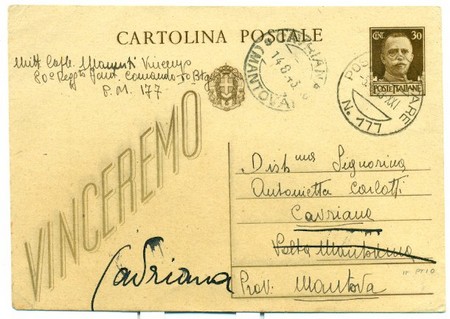 CARTOLINA POSTALE
CENT. 30
POSTE ITALIANE
Mitt.
80º Regg.to Fant. Comando
P.M. 177
CAVRIANA
(MANTOVA)
14.8.43
POSTA MILITARE
N. 177
VINCEREMO
Dist.ma Signorina
Antonietta Carlotti
Cavriana
Volta Mantovana
Cavriana
Prov. Mantova